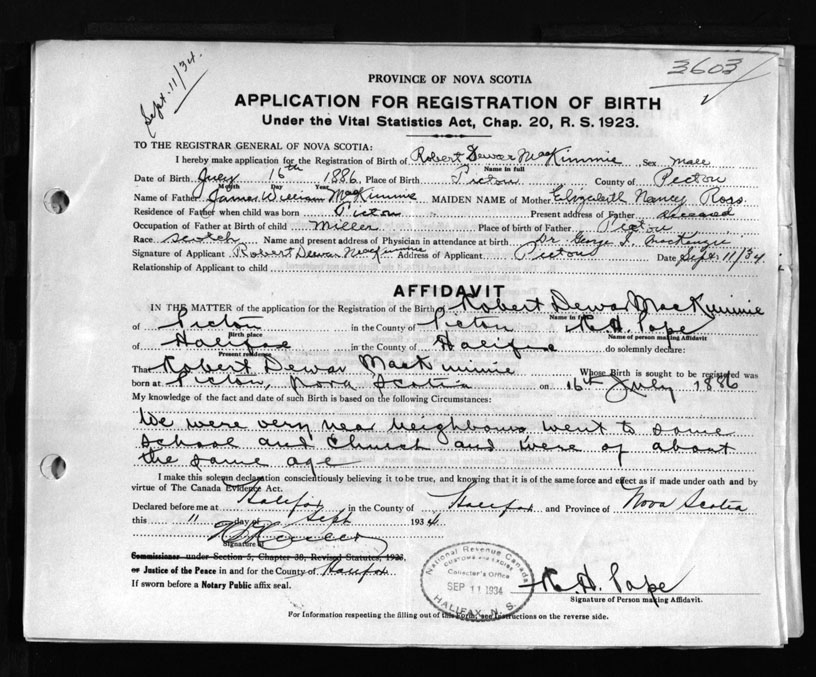 3603
Sept. 11/34.
PROVINCE OF NOVA SCOTIA
APPLICATION FOR REGISTRATION OF BIRTH
Under the Vital Statistics Act, Chap. 20, R. S. 1923.
TO THE REGISTRAR GENERAL OF NOVA SCOTIA:
I hereby make application for the Registration of Birth of Robert Dewar MacKimmie Sex male
Name in full
Date of Birth July 16th 1886, Place of Birth Pictou County of Pictou
Month Day Year
Name of Father James William MacKimmie MAIDEN NAME of Mother Elizabeth Nancy Ross
Residence of Father when child was born Pictou Present address of Father deceased
Occupation of Father at Birth of child Miller Place of birth of Father Pictou
Race Scotch Name and present address of Physician in attendance at birth Dr. George I. MacKenzie
Signature of Applicant Robert Dewar MacKimmie Address of Applicant Pictou Date Sept. 11/34
Relationship of Applicant to child
AFFIDAVIT
IN THE MATTER of the application for the Registration of the Birth of Robert Dewar MacKimmie
Name in full
of Pictou in the County of Pictou R. H. Pope
Birth place Name of person making Affidavit
of Halifax in the County of Halifax do solemnly declare:
Present residence
That Robert Dewar MacKimmie Whose Birth is sought to be registered was
born at Pictou, Nova Scotia on 16th July 1886
My knowledge of the fact and date of such Birth is based on the following Circumstances:
We were very near neighbours went to same
school and Church and were of about
the same age
I make this solemn declaration conscientiously believing it to be true, and knowing that it is of the same force and effect as if made under oath and by
virtue of The Canada Evidence Act.
Declared before me at Halifax in the County of Halifax and Province of Nova Scotia
this 11 day of Sept 1934
Signature of
Commissioner under Section 5, Chapter 38, Revised Statutes, 1923.
or Justice of the Peace in and for the County of Halifax
If sworn before a Notary Public affix seal.
National Revenue Canada
CUSTOMS AND EXCISE
Collector's Office
SEP 11 1934
HALIFAX, N. S.
R. H. Pope
Signature of Person making Affidavit.
For Information respecting the filling out of this Form, see Instructions on the reverse side.